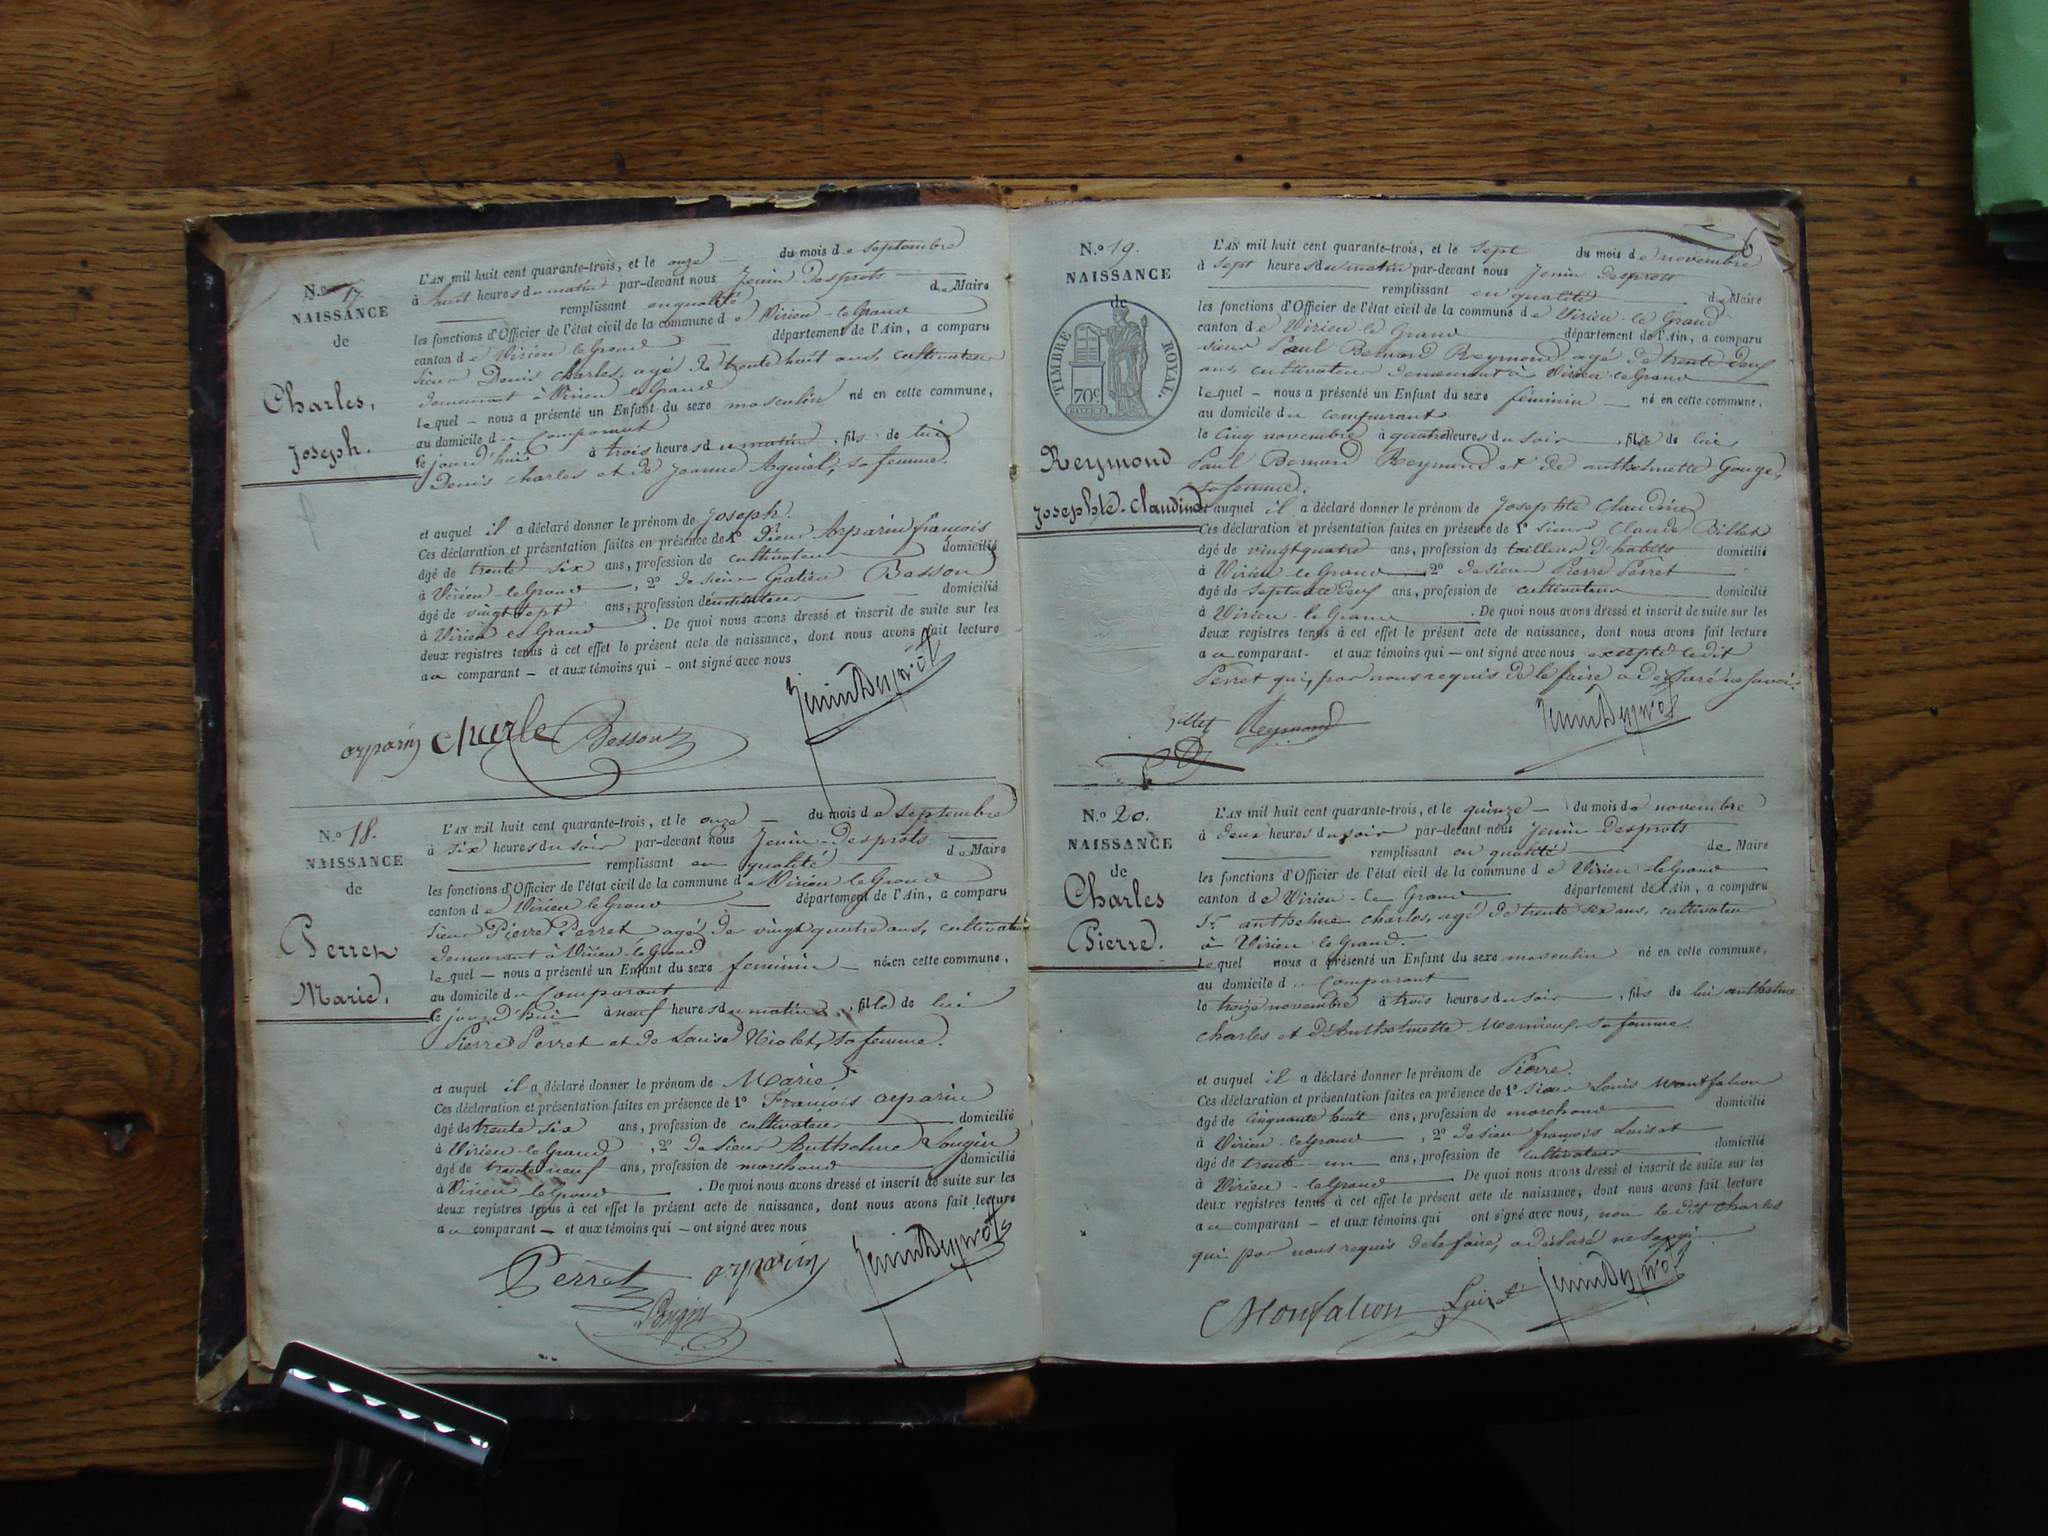 N.o 17.
NAISSANCE
de
Charles,
Joseph.
L'AN mil huit cent quarante-trois, et le onze du mois de septembre
à huit heures du matin par-devant nous Jenin Desprots
remplissant en qualité de Maire
les fonctions d'Officier de l'état civil de la commune de Virieu-le-Grand
canton de Virieu le Grand département de l'Ain, a comparu
sieur Denis Charles, agé de trente huit ans, cultivateur
demeurant à Virieu-le-Grand
lequel – nous a présenté un Enfant du sexe masculin né en cette commune,
au domicile du Comparant
le jourd'hui à trois heures du matin, fils de lui
Denis Charles et de Jeanne sa femme.
et auquel il a déclaré donner le prénom de Joseph.
Ces déclaration et présentation faites en présence de 1o Sieur Arparin françois
âgé de trente six ans, profession de cultivateur domicilié
à Virieu-le-Grand, 2o de sieur Gratien Besson
âgé de vingt sept ans, profession d'instituteur domicilié
à Virieu le Grand. De quoi nous avons dressé et inscrit de suite sur les
deux registres tenus à cet effet le présent acte de naissance, dont nous avons fait lecture
au comparant – et aux témoins qui – ont signé avec nous
arparin Charle Besson JeninDesprots
N.o 18.
NAISSANCE
de
Perret
Marie.
L'AN mil huit cent quarante-trois, et le onze – du mois de septembre
à six heures du soir par-devant nous Jenin-Desprots
remplissant en qualité de Maire
les fonctions d'Officier de l'état civil de la commune de Virieu le Grand
canton de Virieu le Grand département de l'Ain, a comparu
sieur Pierre Perret agé de vingt quatre ans, cultivateur
demeurant à Virieu-le-Grand
lequel – nous a présenté un Enfant du sexe feminin – né en cette commune,
au domicile du Comparant
le jourd'hui à neuf heures du matin, fille de lui
Pierre Perret et de Louise Niolet, sa femme.
et auquel il a déclaré donner le prénom de Marie.
Ces déclaration et présentation faites en présence de 1o François arparin
âgé de trente six ans, profession de cultivateur domicilié
à Virieu-le-Grand, 2o de sieur Anthelme
âgé de trente neuf ans, profession de marchand domicilié
à Virieu le Grand. De quoi nous avons dressé et inscrit de suite sur les
deux registres tenus à cet effet le présent acte de naissance, dont nous avons fait lecture
au comparant – et aux témoins qui – ont signé avec nous
Perret arparin JeninDesprots
N.o 19.
NAISSANCE
de
TIMBRE ROYAL.
70c
Reymond
Josephte-Claudine
6
L'AN mil huit cent quarante-trois, et le sept du mois de novembre
à sept heures du matin par-devant nous Jenin Desprots
remplissant en qualité de Maire
les fonctions d'Officier de l'état civil de la commune de Virieu-le Grand
canton de Virieu-le Grand département de l'Ain, a comparu
sieur Paul Bernard Reymond, agé de trente deux
ans, cultivateur demeurant à Virieu-le-Grand
lequel – nous a présenté un Enfant du sexe féminin – né en cette commune,
au domicile du comparant
le cinq novembre à quatre heures du soir, fille de lui,
Paul Bernard Reymond et de anthelmette Gouge,
sa femme.
et auquel il a déclaré donner le prénom de Josephte Claudine
Ces déclaration et présentation faites en présence de 1o sieur Claude Billet
âgé de vingt quatre ans, profession de tailleur d'habits domicilié
à Virieu-le-Grand, 2o de sieur Pierre Perret
âgé de septante deux ans, profession de cultivateur domicilié
à Virieu-le-Grand. De quoi nous avons dressé et inscrit de suite sur les
deux registres tenus à cet effet le présent acte de naissance, dont nous avons fait lecture
au comparant – et aux témoins qui – ont signé avec nous excepté ledit
Perret qui, par nous requis de le faire a déclaré ne savoir.
Billet Reymond JeninDesprots
N.o 20.
NAISSANCE
de
Charles
Pierre.
L'AN mil huit cent quarante-trois, et le quinze – du mois de novembre
à deux heures du soir par-devant nous Jenin-Desprots
remplissant en qualité de Maire
les fonctions d'Officier de l'état civil de la commune de Virieu-le-Grand
canton de Virieu-le-Grand département de l'Ain, a comparu
Sr. anthelme Charles, agé de trente six ans, cultivateur
à Virieu le Grand.
lequel nous a présenté un Enfant du sexe masculin né en cette commune,
au domicile du Comparant
le treize novembre à trois heures du soir, fils de lui anthelme
Charles et d'Anthelmette sa femme.
et auquel il a déclaré donner le prénom de Pierre.
Ces déclaration et présentation faites en présence de 1o Sieur Louis Montfalcon
âgé de cinquante huit ans, profession de marchand domicilié
à Virieu-le-Grand, 2o de sieur françois Luiset
âgé de trente-un ans, profession de cultivateur domicilié
à Virieu-le-Grand. De quoi nous avons dressé et inscrit de suite sur les
deux registres tenus à cet effet le présent acte de naissance, dont nous avons fait lecture
au comparant – et aux témoins qui ont signé avec nous, non ledit Charles
qui par nous requis de le faire, a déclaré ne
Monfalcon Luiset JeninDesprots